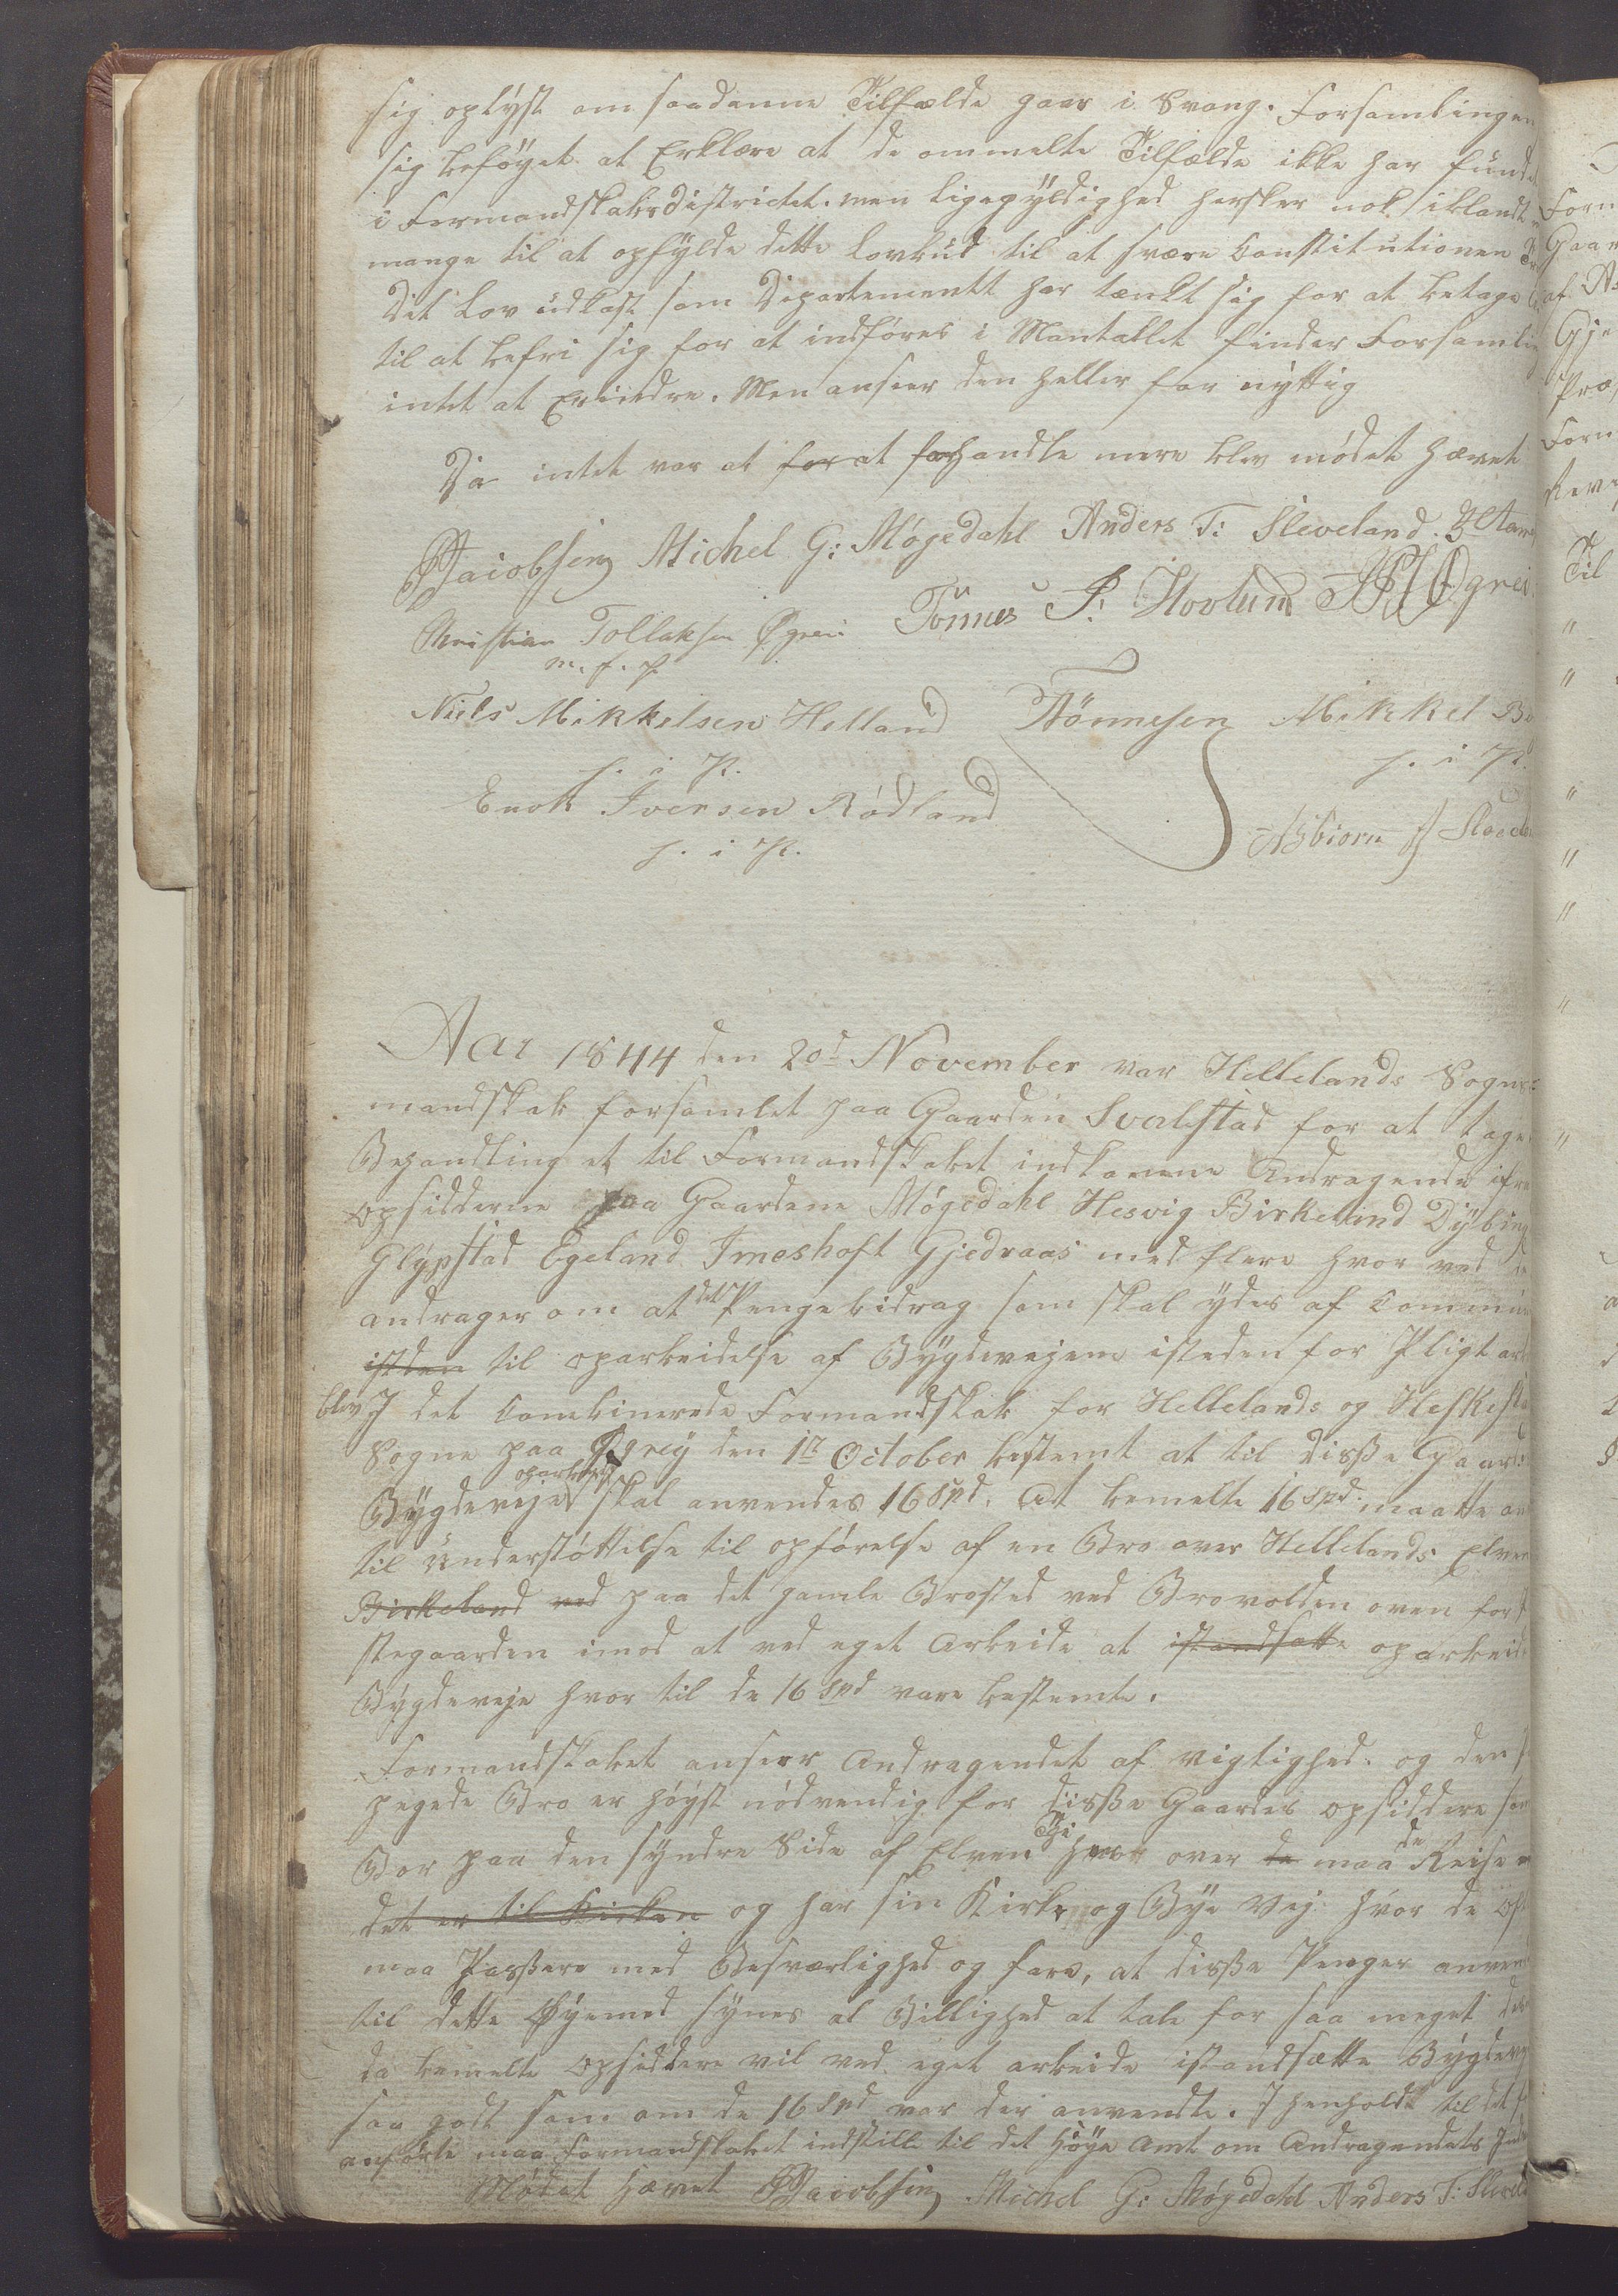 sig oplyst om saadanne Tilfælde gaar i Svang. Forsamlingen
sig beføyet at Erklære at de ommelte Tilfælde ikke har funde
i Formandskabsdistrictet. men Ligegyldighed hersker nok iblandt
mange til at opfylde dette Lovbud til at svære Constitutionen
Det Lov udkast som Departementt har tænkt sig for at betage
til at befri sig for at indføres i Mantallet finder Forsamlin
intet at Erindre. Men anseer den heller for nyttig
Da intet var at for at forhandle mere blev mødet hævet
Jacobsen Michel G: Møgedahl Anders T: Sleveland.
Christian Tollaksen Øgrei Tönnes P. Hovlund Øgrei
m. f. P
Niels Mikkelsen Helland Tønnesen Mikkel
h. i P. h. i P.
Enok Iversen Rødland
h. i P. Asbiorn Sleveland
Aar 1844 den 20d November var Hellelands Sogne
mandskab forsamlet paa Gaarden Svalestad for at tage
Behandling et til Formandskabet indkomne Andragende ifra
Opsidderne paa Gaardene Møgedahl Hesvig Birkeland Dybing
Glypstad Egeland Imeshoft Gjedraas med flere hvor ved de
andrager om at det Pengebidrag som skal ydes af Commun
istden til oparbeidelse af Bygdevejene isteden for Pligt ar
blev I det Combinerede Formandskab for Hellelands og Heskestad
Sogne paa Øgrey den 1te October bestemt at til disse Gaard
oparbeid
Bygdeveje skal anvendes 16 Spd. At bemelte 16 spd. maatte an
til Understøttelse til opførelse af en Bro over Hellelands Elven
Birkeland ved paa det gamle Brosted ved Brovolden oven for
stegaarden imod at ved eget Arbeide at istandsatte oparbeid
Bygdeveje hvor til de 16 Spd vare bestemte.
Formandskabet anseer Andragendet af vigtighed. og den
pegede Bro er høyst nødvendig for disse Gaardes opsiddere som
Bor paa den syndre Side af Elven hvor over de maa de Reise
det er til Kirken og har sin Kirke og Bye Vej hvor de oft
maa Passere med Besværlighed og fare, at disse Penger anven
til dette Øyemed synes al Billighed at tale for saa meget
da bemelte Opsiddere vil ved eget arbeide istandsætte Bygdevej
saa godt som om de 16 Spd var der anvendte. I henhold til det
anførte maa Formandskabet indstille til det Høye Amt om Andragendets
Mødet Hævet Jacobsen Michel G: Møgedahl Anders T: Slevela